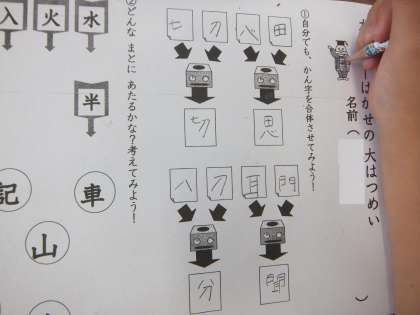 ーはかせの 大はつめい
名前（　）
①自分でも、かん字を合体させてみよう！
田 心 刀 七
思 切
門 耳 刀 八
聞 分
②どんな まとに あたるかな？考えてみよう！
水 火 入
半
車 山 記